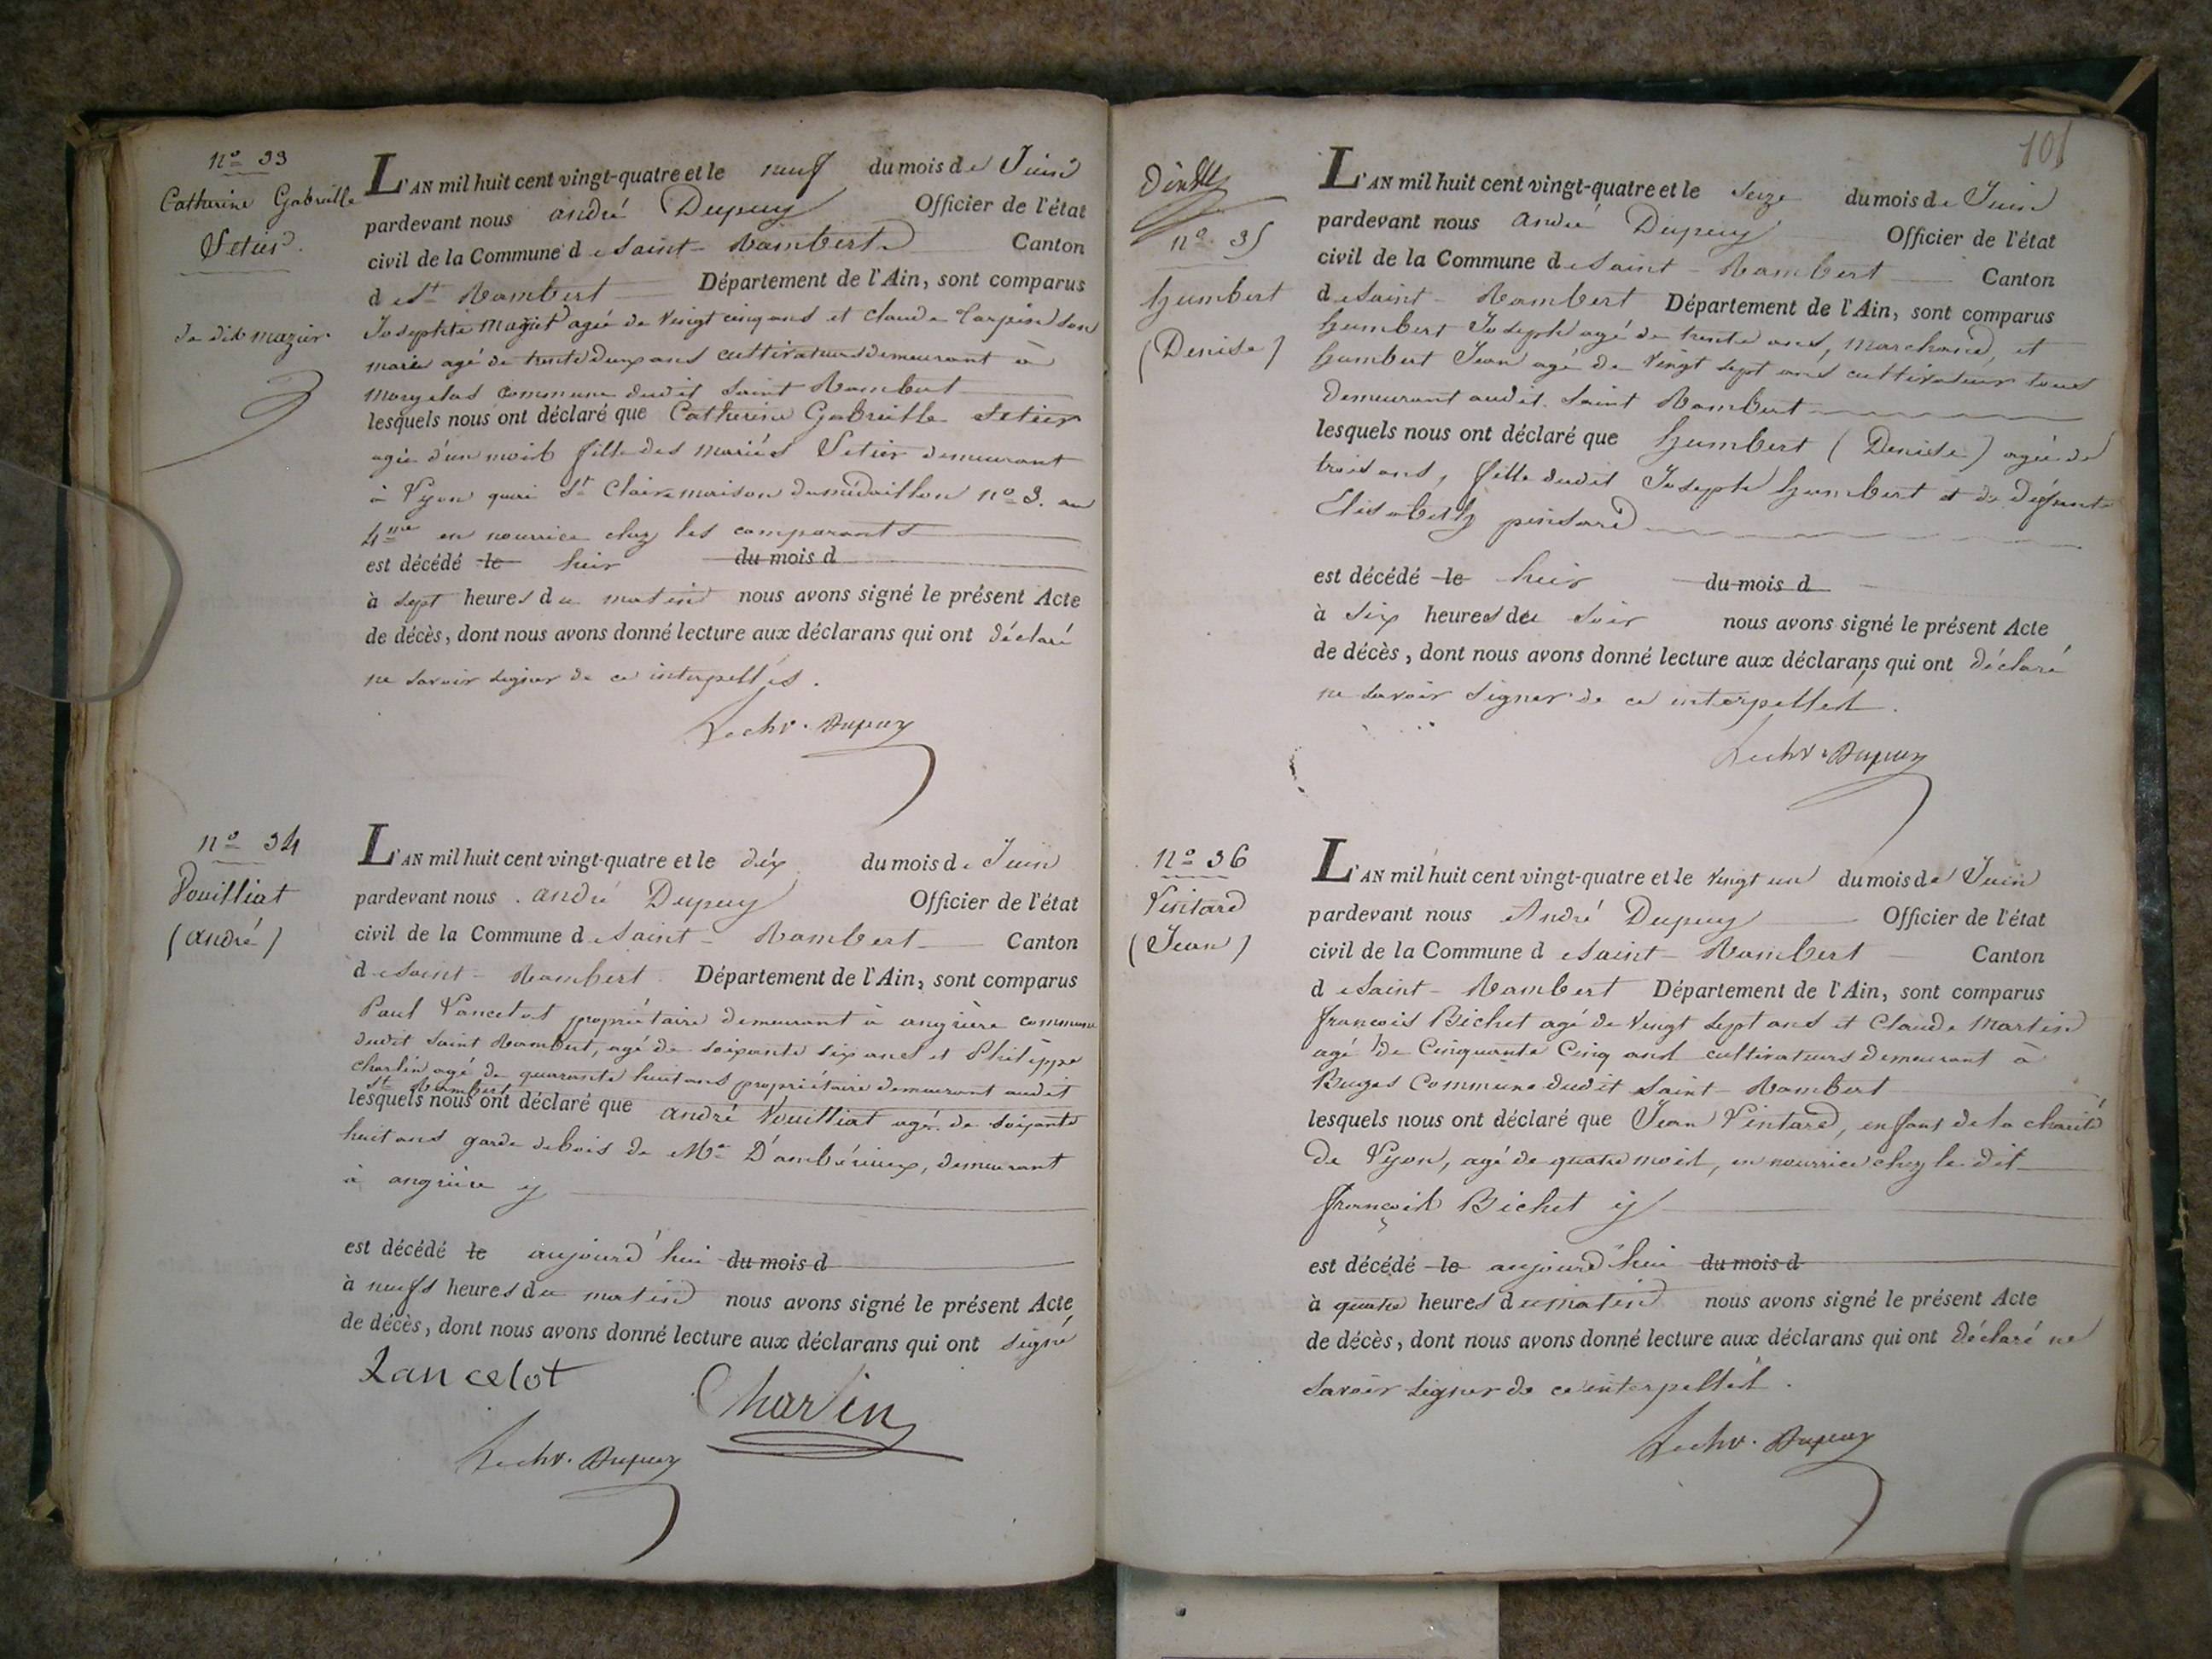 nº 33
Catherine Gabrielle
Setier
L'AN mil huit cent vingt-quatre et le neuf du mois de Juin
pardevant nous andré Dupuy Officier de l'état
civil de la Commune de Saint-Rambert Canton
de St Rambert Département de l'Ain, sont comparus
agée de vingt cinq ans et Claude Carpin son
marie agé de trente deux ans cultivateurs demeurant à
Morgelas commune dudit Saint Rambert
lesquels nous ont déclaré que Catherine Gabrielle Setier
agée d'un mois fille des mariés Setier demeurant
à Lyon quai St Claire maison du médaillon nº 3. au
4me en nourrice chez les comparants
est décédé le heir du mois d
à sept heures du matin nous avons signé le présent Acte
de décès, dont nous avons donné lecture aux déclarans qui ont déclaré
ne savoir signer de ce interpellés.
Dupuy
nº 34
Vouilliat
(andré)
L'AN mil huit cent vingt-quatre et le dix du mois de Juin
pardevant nous andré Dupuy Officier de l'état
civil de la Commune de Saint-Rambert Canton
de Saint-Rambert Département de l'Ain, sont comparus
Paul Lancelot propriétaire demeurant à angrière commune
dudit Saint Rambert, agé de soixante six ans et Philippe
charlin agé de quarante huit ans propriétaire demeurant audit
St Rambert
lesquels nous ont déclaré que andré Vouilliat agé de soixante
huit ans garde debois de Mr D'ambérieux, demeurant
à angrière
est décédé le aujourd'hui du mois d
à neufs heures du matin nous avons signé le présent Acte
de décès, dont nous avons donné lecture aux déclarans qui ont signé
Lancelot
Charlin
Dupuy
101
nº 35
humbert
(Denise)
L'AN mil huit cent vingt-quatre et le seize du mois de Juin
pardevant nous André Dupuy Officier de l'état
civil de la Commune de Saint-Rambert Canton
de Saint-Rambert Département de l'Ain, sont comparus
humbert Joseph agé de trente ans, marchand, et
humbert Jean agé de vingt sept ans cultivateur tous
demeurant audit Saint Rambert
lesquels nous ont déclaré que humbert (Denise) agée de
trois ans, fille dudit Joseph humbert et de défunte
Elisabeth pinsard
est décédé le heir du mois d
à six heures du soir nous avons signé le présent Acte
de décès, dont nous avons donné lecture aux déclarans qui ont déclaré
ne savoir signer de ce interpellés.
Dupuy
nº 36
Pintard
(Jean)
L'AN mil huit cent vingt-quatre et le vingt un du mois de Juin
pardevant nous André Dupuy Officier de l'état
civil de la Commune de Saint-Rambert Canton
de Saint-Rambert Département de l'Ain, sont comparus
françois Bichet agé de vingt sept ans et Claude Martin
agé de Cinquante Cinq ans cultivateurs demeurant à
Buges Commune dudit Saint-Rambert
lesquels nous ont déclaré que Jean Pintard, enfant de la charité
de Lyon, agé de quatre mois, en nourrice chez le dit
françois Bichet
est décédé le aujourd'hui du mois d
à quatre heures du matin nous avons signé le présent Acte
de décès, dont nous avons donné lecture aux déclarans qui ont déclaré ne
savoir signer de ce interpellés.
Dupuy